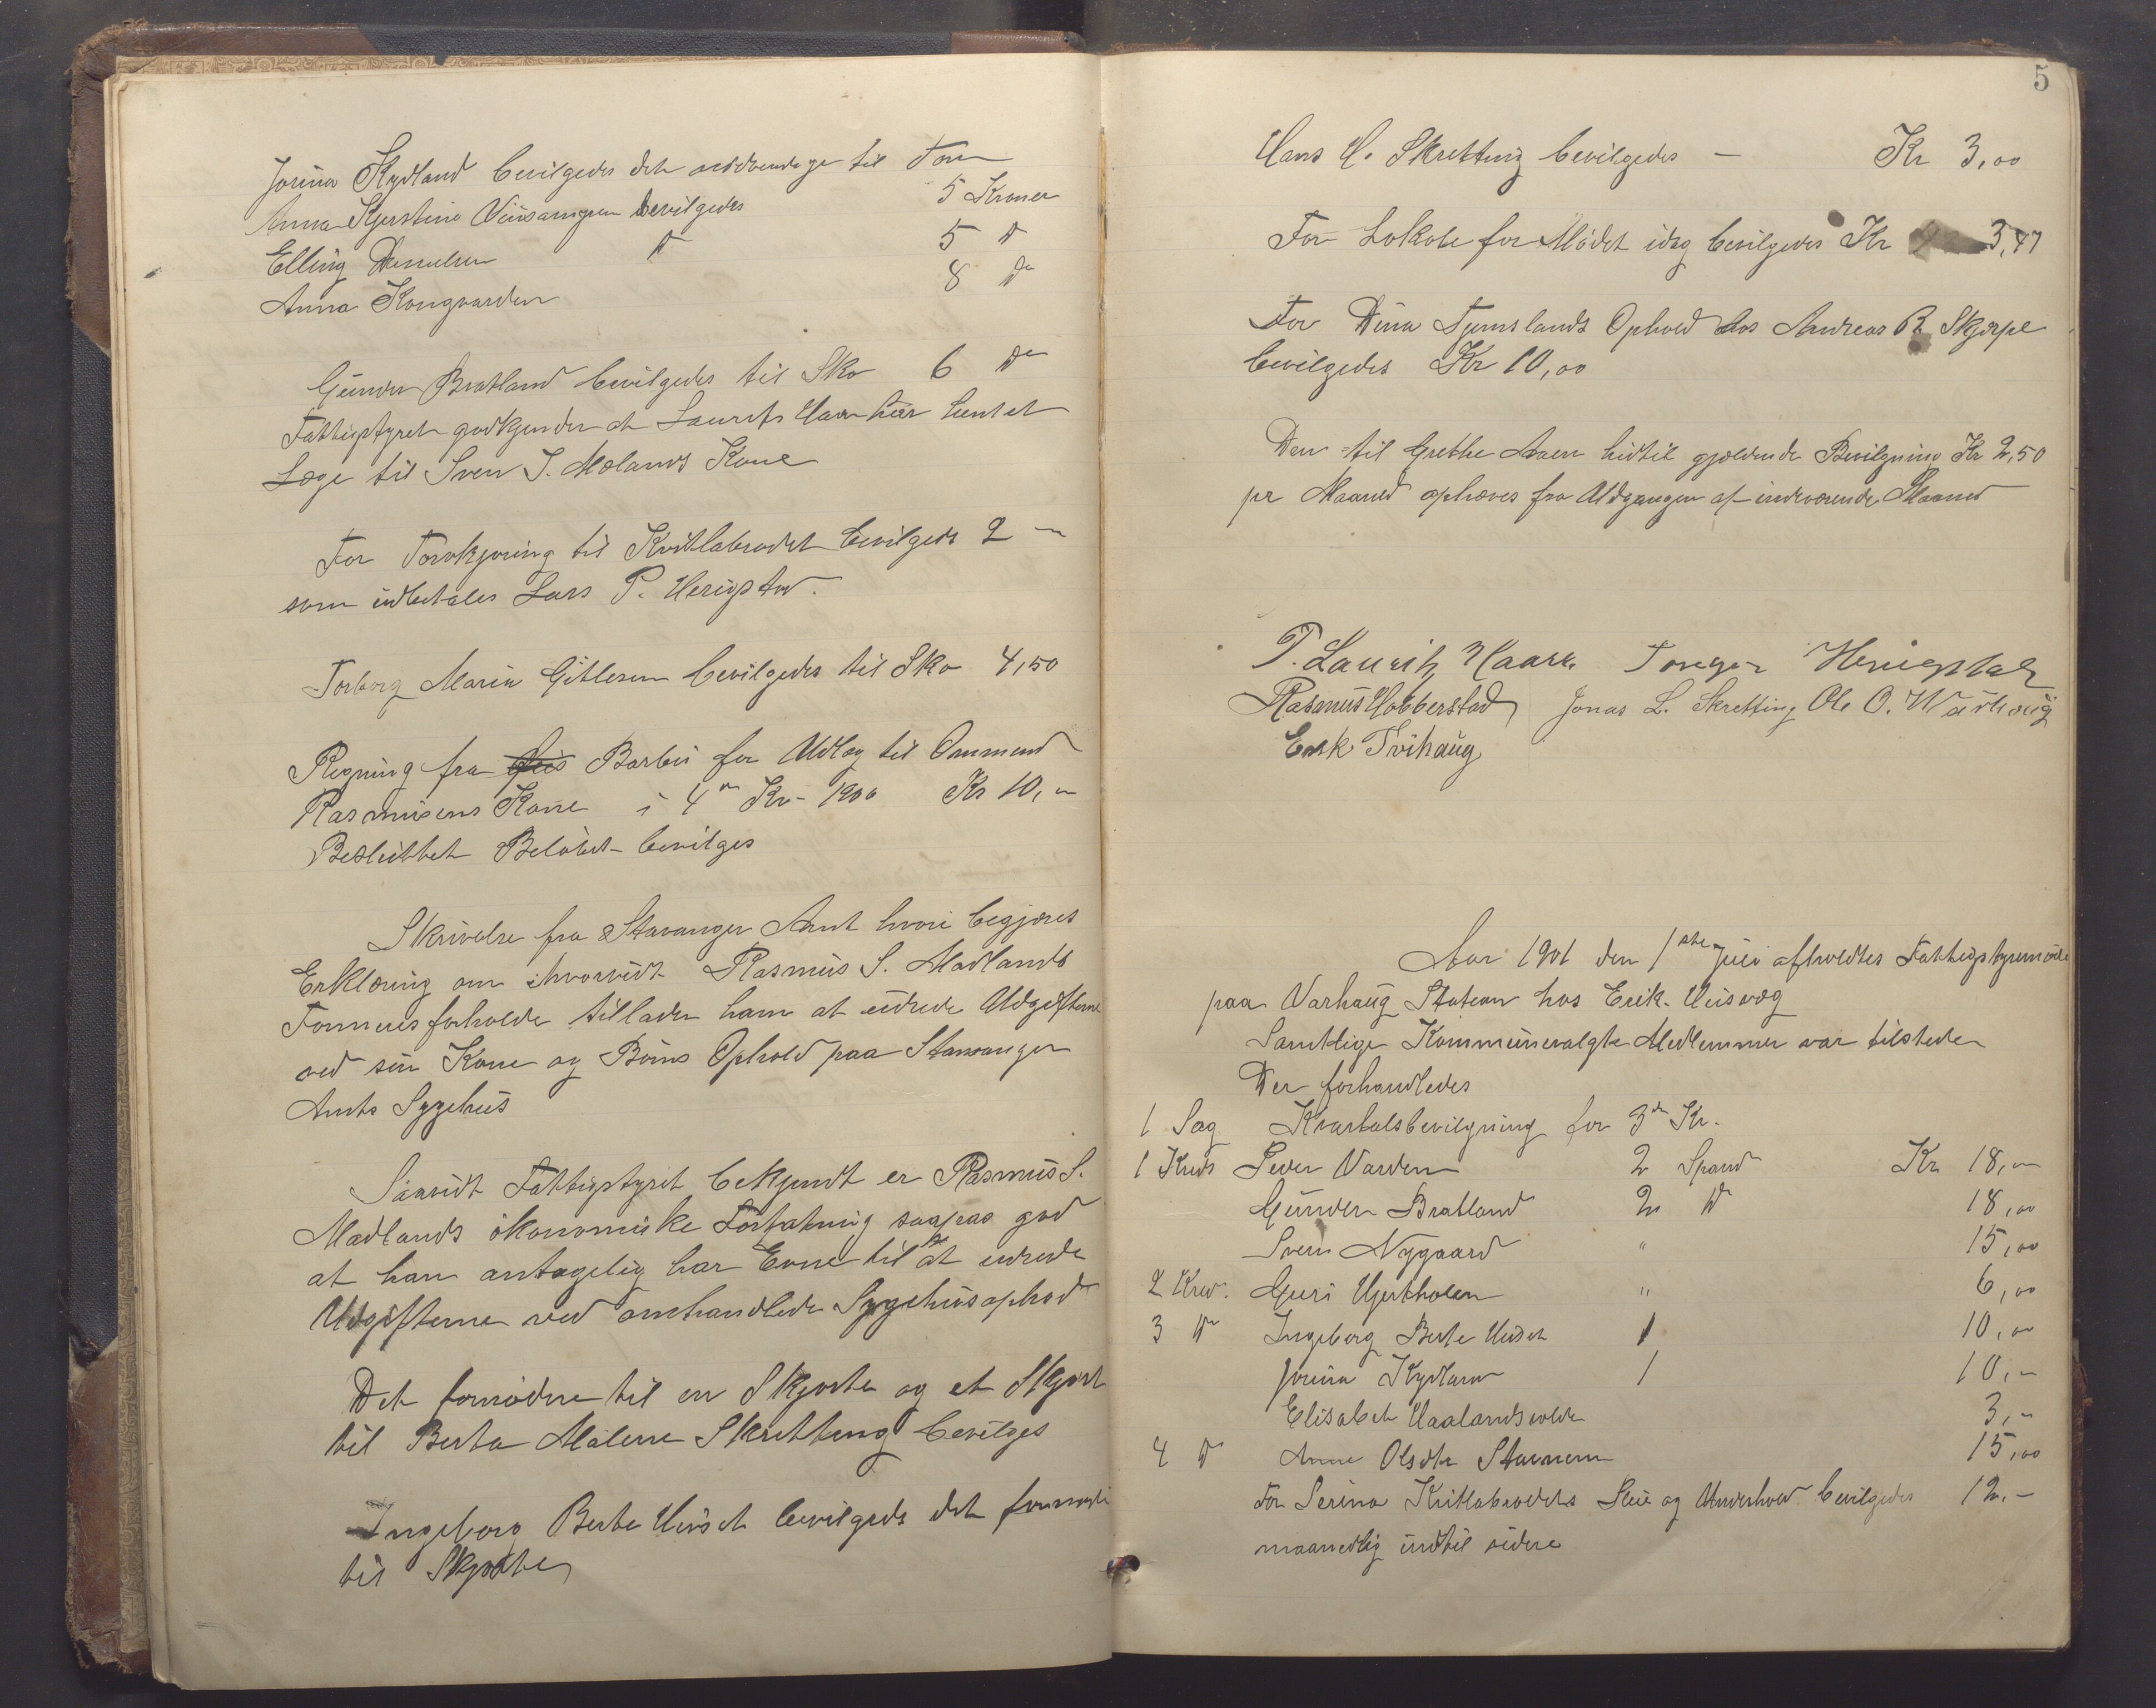 Jorina Kydland bevilgedes det nødvendige til Torv
Anna Kjerstine bevilgedes 5 Kroner
Elling Danielsen D 5 D
Anna Kongevarden 8 Do
Gunder Bratland bevilgedes til Sko 6 Do
Fattigstyret godkjender at Laurits Haar har hentet
Læge til Sven S. Mælands Kone
For Torvkjøring til Kvitlabrodet bevilgedes 2 "
som udbetales Lars P. Herigstad.
Torborg Maria Gitlesen bevilgedes til Sko 4,50
Regning fra Barbu for Udlæg til Ommund
Rasmusens Kone i 4de Kv- 1900 Kr 10,"
Besluttet Beløbet bevilges
Skrivelse fra Stavanger Amt hvori begjæres
Erklæring om hvorvidt Rasmus S. Madlands
Formuesforholde tillader ham at udrede Udgifterne
ved sin Kone og Børns Ophold paa Stavanger
Amts Sygehus
Saavidt Fattigstyret bekjendt er Rasmus S.
Madlands økonomiske Forfatning saapas god
at han antagelig har Evne til at udrede
Udgifterne ved omhandlede Sygehusophold
Det fornødne til en Skjorte og et Skjørt
til Berta Malene Skretting bevilges
Ingeborg Berte Huset bevilgeds det fornødne
til Skjorte
5
Hans H. Skretting bevilgedes — Kr 3,00
For Lokale for Mødet idag bevilgedes Kr 3,47
For Dina Tjemslands Ophold hos Andreas R. Skjerpe
bevilgedes Kr 10,00
Den til Grethe Aaen hidtil gjældende Bevilgning Kr 2,50
pr Maaned ophæves fra Udgangen af indeværende Maaned
T. Lauritz Haar. Torger Herigstad
Rasmus Hobberstad Jonas L. Skretting Ole O. Warhaug
Erik Tvihaug
Aar 1901 den 1ste Juli afholdtes Fattigstyremøde
paa Varhaug Station hos Erik Husvæg
Samtlige Kommunevalgte Medlemmer var tilstede
Der forhandledes
1 Sag Kvartalsbevilgning for 3de Kv.
1 Kreds Peder Varden 2 Spand Kr 18,"
Gunder Bratland 2 D 18,00
Sven Nygaard " 15,00
2 Kred. Guri Hjertholen " 6,00
3 D Ingeborg Berte Huset 1 10,00
Jorina Kydland 1 10,"
Elisabet Haalandsvolde 3,"
4 D Anne Olsdtr Stavnem 15,00
For Serina Kvitlabrodets Pleie og Underhold bevilgedes 12,-
maanedlig indtil videre